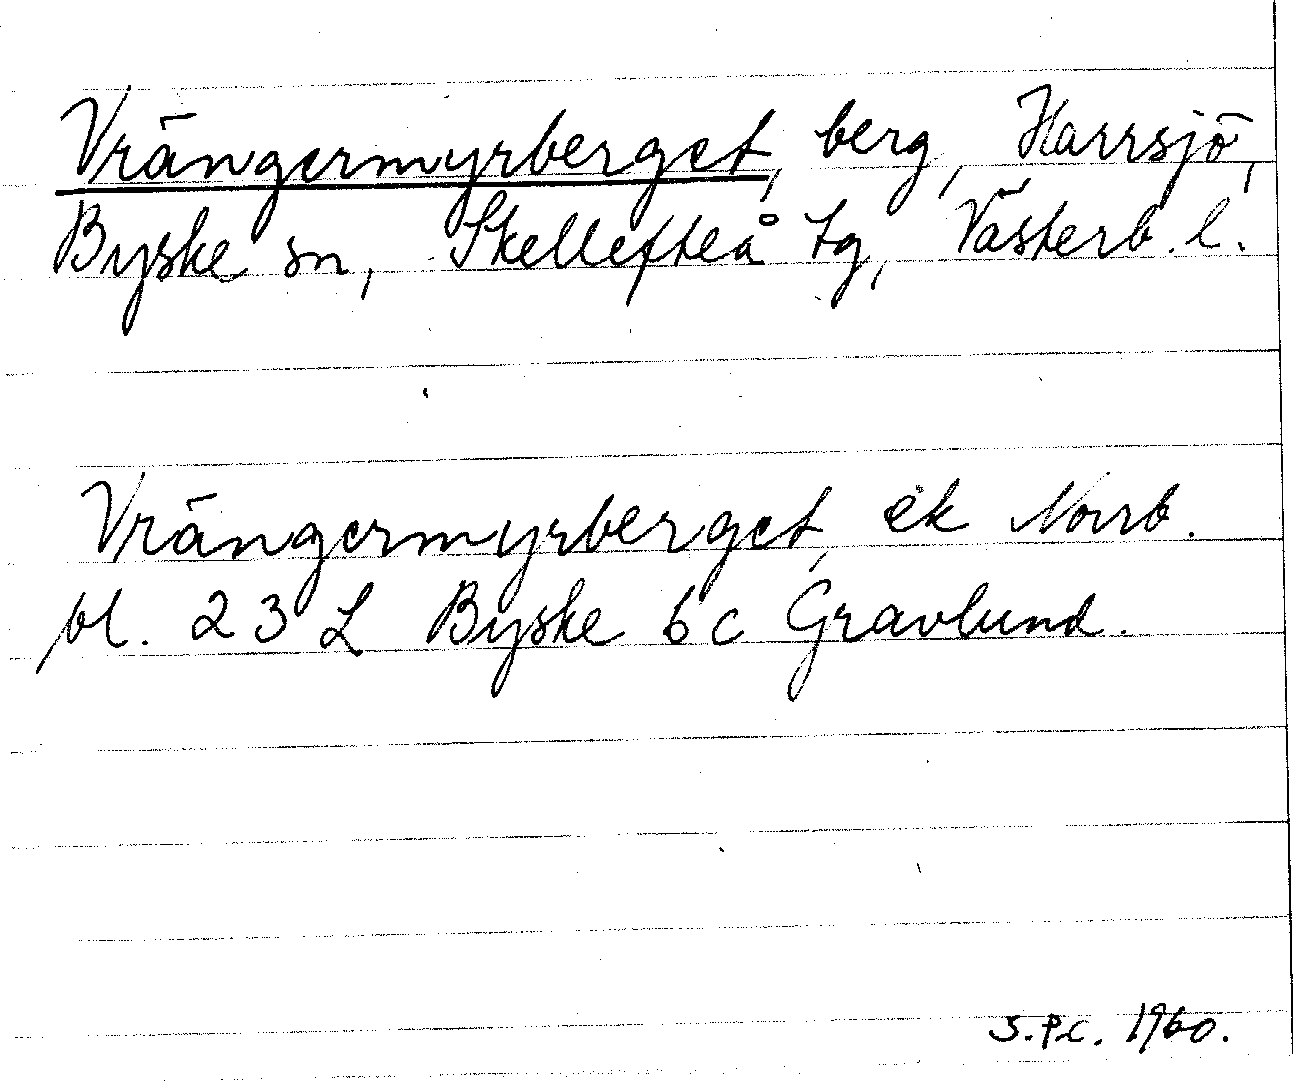 Vrängermyrberget, berg, Harrsjö,
Byske sn, Skellefteå tg, Västerb. l.
Vrängermyrberget, ek Norrb.
bl. 23 L Byske 6 c Gravlund.
S.P.C. 1960.